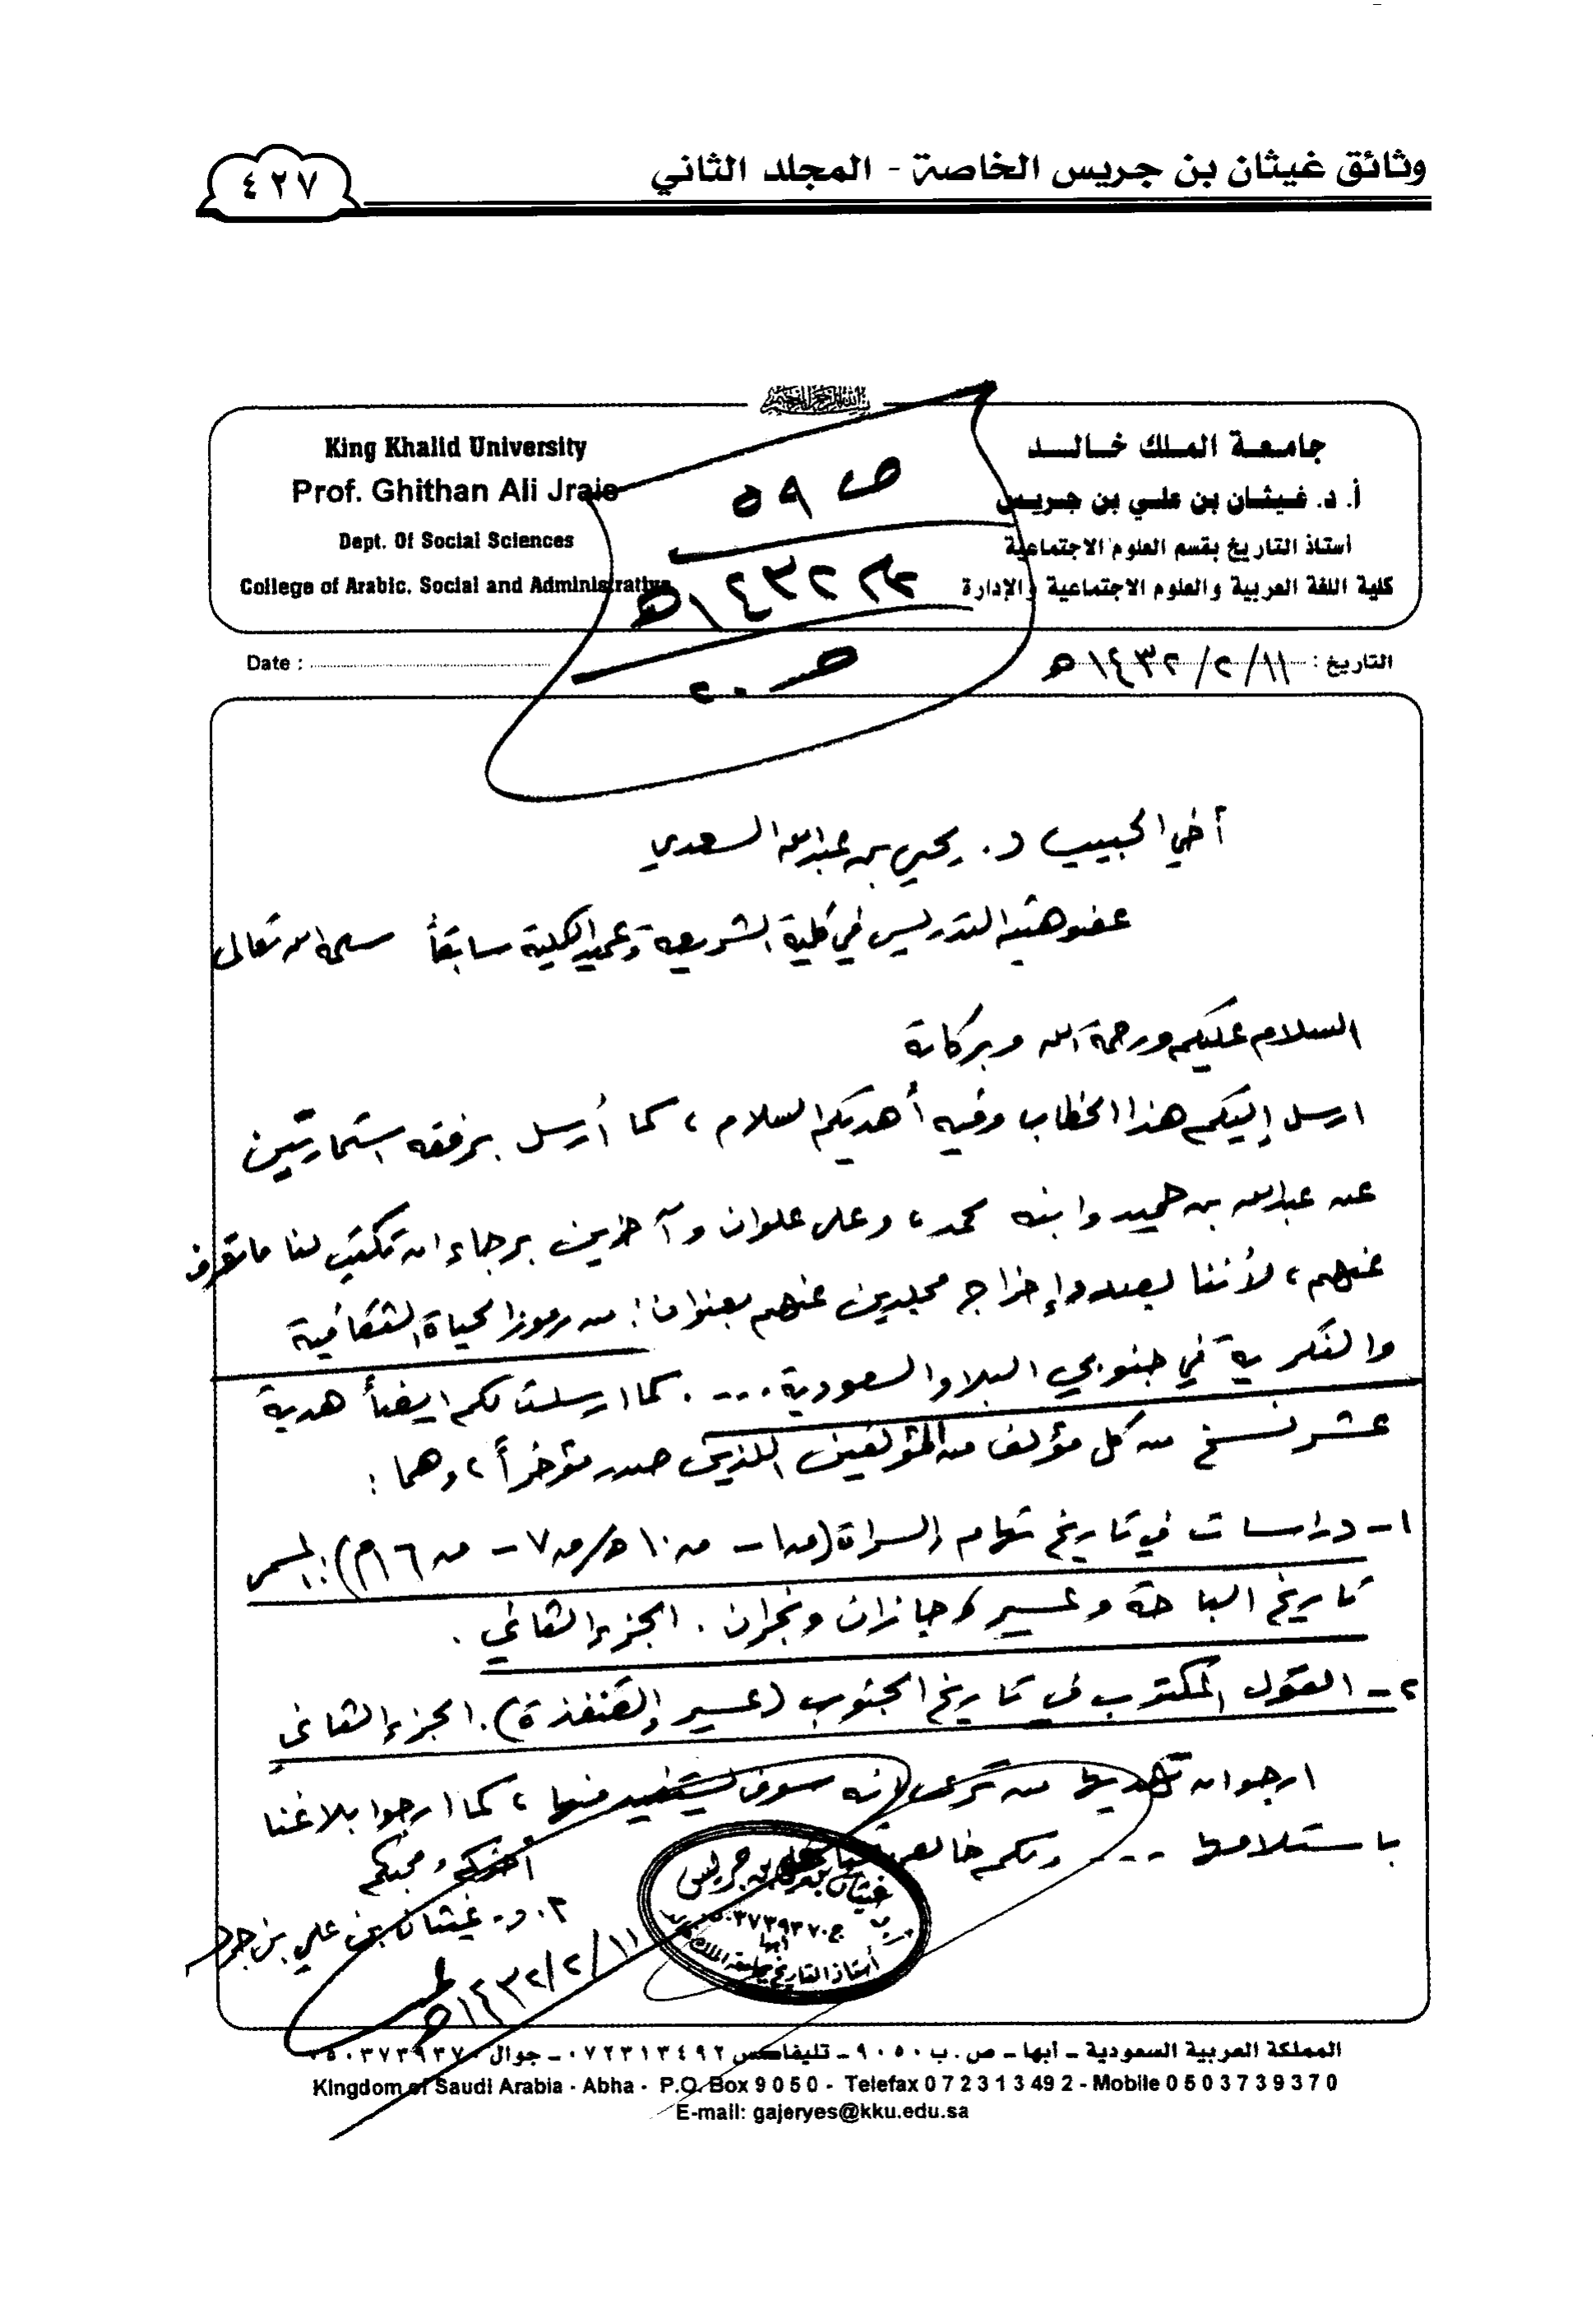 وثائق غيثان بن جريس الخاصة - المجلد الثاني
٤٢٧
بسم الله الرحمن الرحيم
جامعة الملك خالد
أ. د. غيثان بن علي بن جريس
أستاذ التاريخ بقسم العلوم الاجتماعية
كلية اللغة العربية والعلوم الاجتماعية والإدارة
King Khalid University
Prof. Ghithan Ali Jrais
Dept. Of Social Sciences
College of Arabic. Social and Administrative
ص ٥٩
١٤٣٢هـ
التاريخ : ١١/٢/١٤٣٢هـ
Date :
أخي الحبيب د. يحيى بن عبدالله السعدي
عضو هيئة التدريس في كلية الشريعة وعميد الكلية سابقاً سلمه الله تعالى
السلام عليكم ورحمة الله وبركاته
ارسل إليكم هذا الخطاب وفيه أهديكم السلام، كما أرسل برفقه استمارتين
عن عبدالله بن حميد وابنه محمد، وعلي علوان وآخرين برجاء ان تكتب لنا ما تعرف
عنهم، لأننا بصدد إخراج مجلدين عنهم بعنوان: من رموز الحياة الثقافية
والفكرية في جنوبي البلاد السعودية.... كما ارسلت لكم ايضاً هدية
عشر نسخ من كل مؤلف من المؤلفين اللذين صدر مؤخراً، وهما:
١- دراسات في تاريخ تهامة والسراة (ق١- ق١٠هـ/ق٧- ق١٦م):
تاريخ الباحة وعسير وجازان ونجران. الجزء الثاني.
٢- القول المكتوب في تاريخ الجنوب (عسير والقنفذة). الجزء الثاني
ارجو ان تهديها من ترى انه سوف يستفيد منها، كما ارجو ابلاغنا
باستلامها ... ولكم خالص
أخوكم ومحبكم
أ. د. غيثان بن علي بن جريس
١١/٢/١٤٣٢هـ
غيثان بن علي بن جريس
ج ٠٥٠٣٧٣٩٣٧٠
أبها
أستاذ التاريخ بجامعة الملك
المملكة العربية السعودية - أبها - ص. ب ٩٠٥٠ - تليفاكس ٠٧٢٣١٣٤٩٢ - جوال ٠٥٠٣٧٣٩٣٧٠
Kingdom of Saudi Arabia - Abha - P.O. Box 9050 - Telefax 072313492 - Mobile 0503739370
E-mail: gajeryes@kku.edu.sa